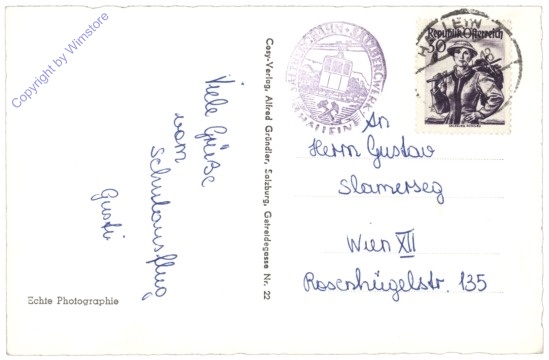 Copyright by Wimstore
Viele Grüße
vom
Schulausflug
Gusti
Echte Photographie
Cosy-Verlag, Alfred Gründler, Salzburg, Getreidegasse Nr. 22
SALZBERGWERK
HALLEIN
HALLEIN
Republik Österreich
30
An
Herrn Gustav
Slamerseg
Wien XII
Rosenhügelstr. 135